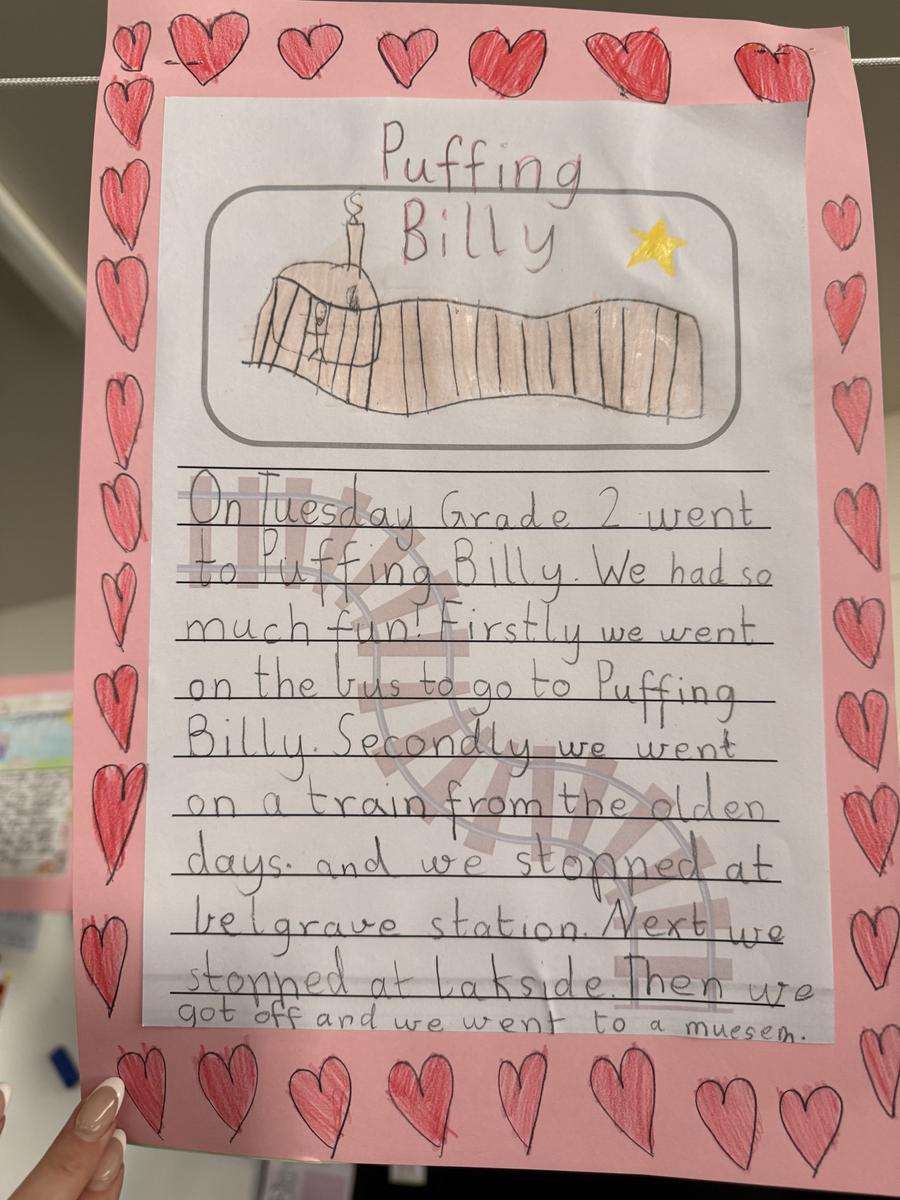 Puffing
Billy
On Tuesday Grade 2 went
to Puffing Billy. We had so
much fun! Firstly we went
on the bus to go to Puffing
Billy. Secondly we went
on a train from the olden
days. and we stopped at
belgrave station. Next we
stopped at Lakside. Then we
got off and we went to a muesem.